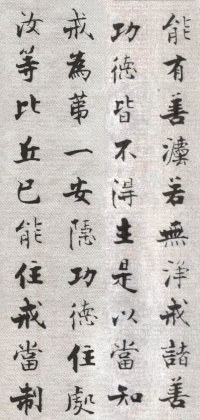 能有善瀍若無淨戒諸善
功德皆不得生是以當知
戒為苐一安隱功德住處
汝等比丘已能住戒當制